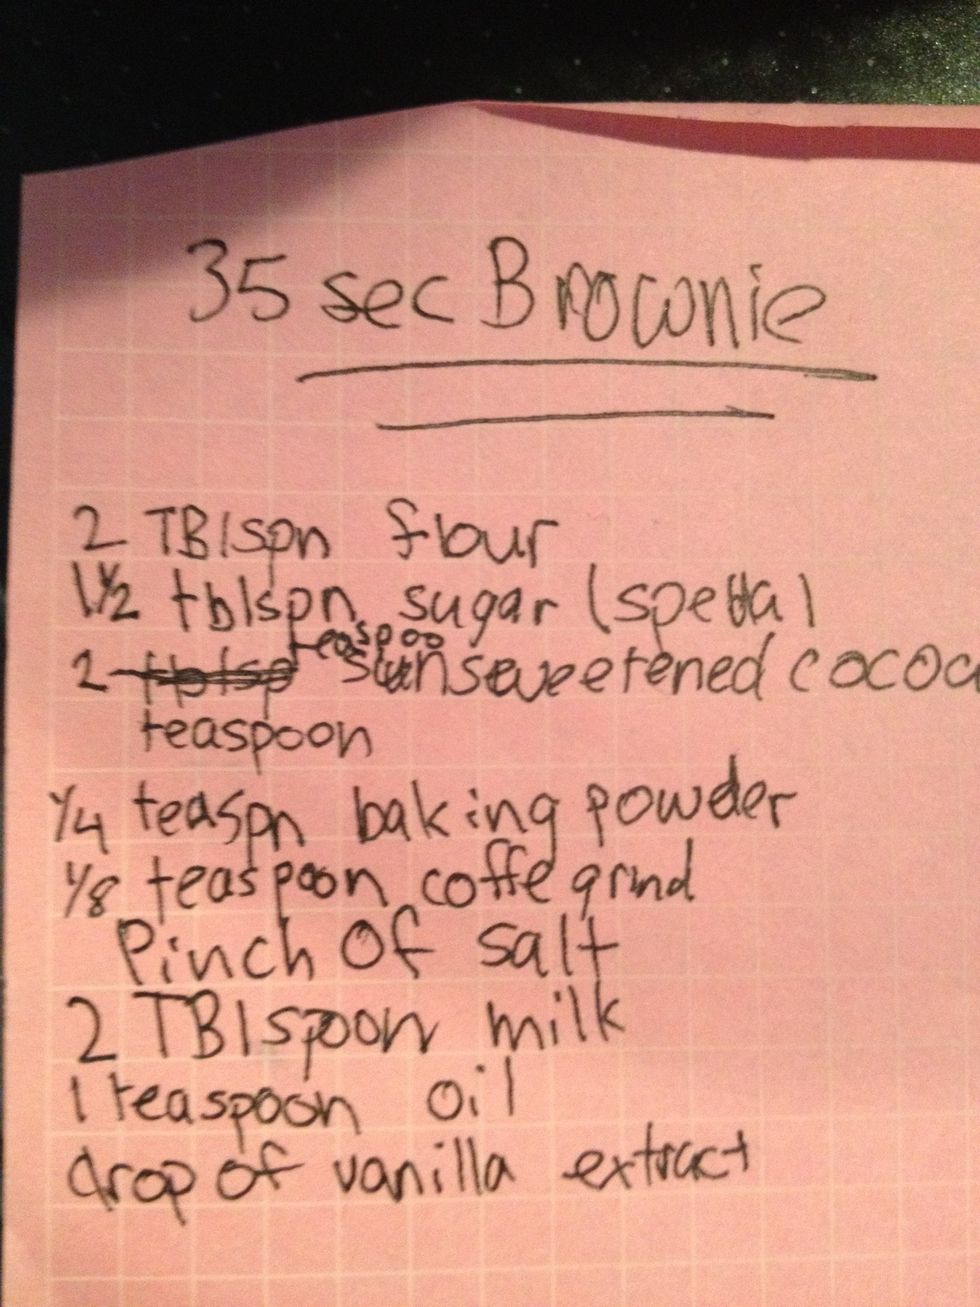 35 sec Brownie
2 TBlspn flour
1 1/2 tblspn sugar (
teaspoo
2 unsweetened cocoa
teaspoon
1/4 teaspn baking powder
1/8 teaspoon coffe grind
Pinch Of salt
2 TBlspoon milk
1 teaspoon oil
drop of vanilla extract